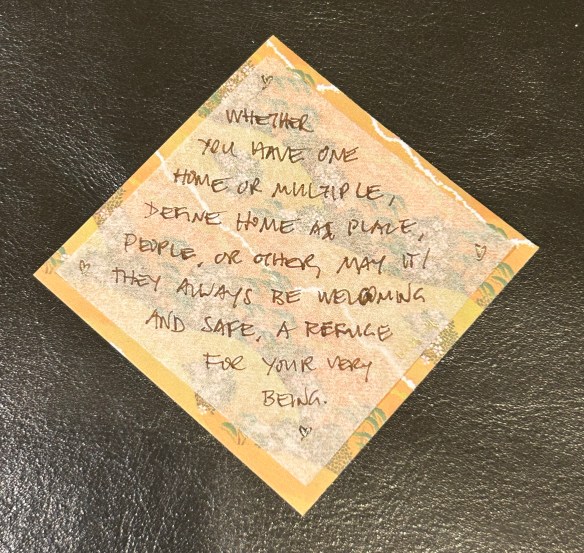 WHETHER
YOU HAVE ONE
HOME OR MULTIPLE,
DEFINE HOME AS PLACE,
PEOPLE, OR OTHER, MAY IT/
THEY ALWAYS BE WELCOMING
AND SAFE, A REFUGE
FOR YOUR VERY
BEING.